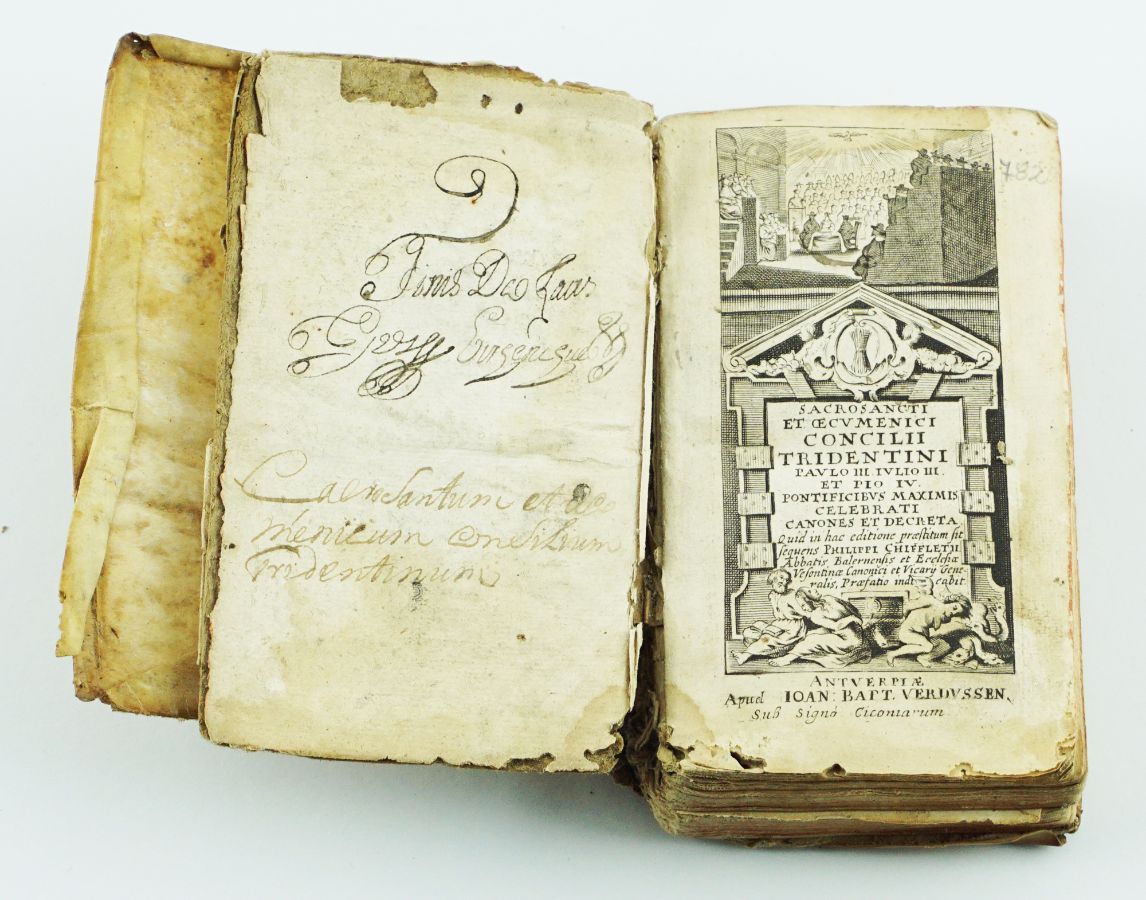 Finis Deo Laus
Caerosantum et œc
menicum consilium
Tridentinum
782
SACROSANCTI
ET ŒCVMENICI
CONCILII
TRIDENTINI
PAVLO III. IVLIO III.
ET PIO IV.
PONTIFICIBVS MAXIMIS
CELEBRATI
CANONES ET DECRETA
Quid in hac editione præstitum sit
sequens PHILIPPI CHIFFLETII
Abbatis Balernensis et Ecclesiæ
Vesontinæ Canonici et Vicarij Gene-
ralis, Præfatio indicabit
ANTVERPIÆ
Apud IOAN: BAPT. VERDVSSEN,
Sub Signo Ciconiarum